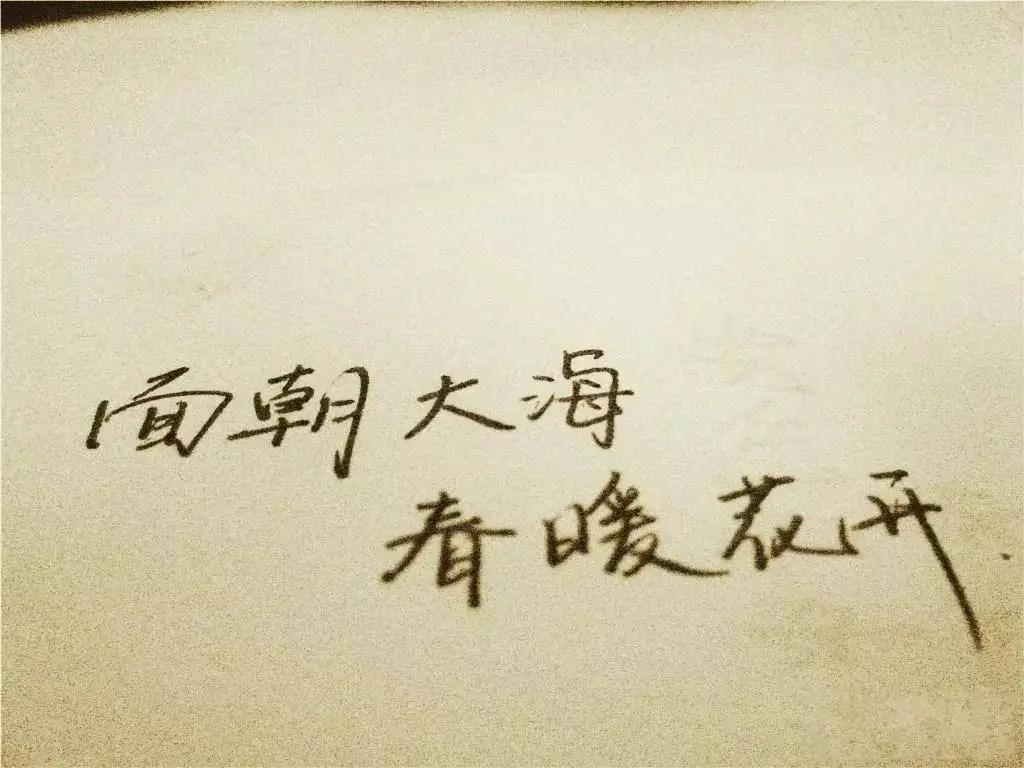 面朝大海
春暖花开.